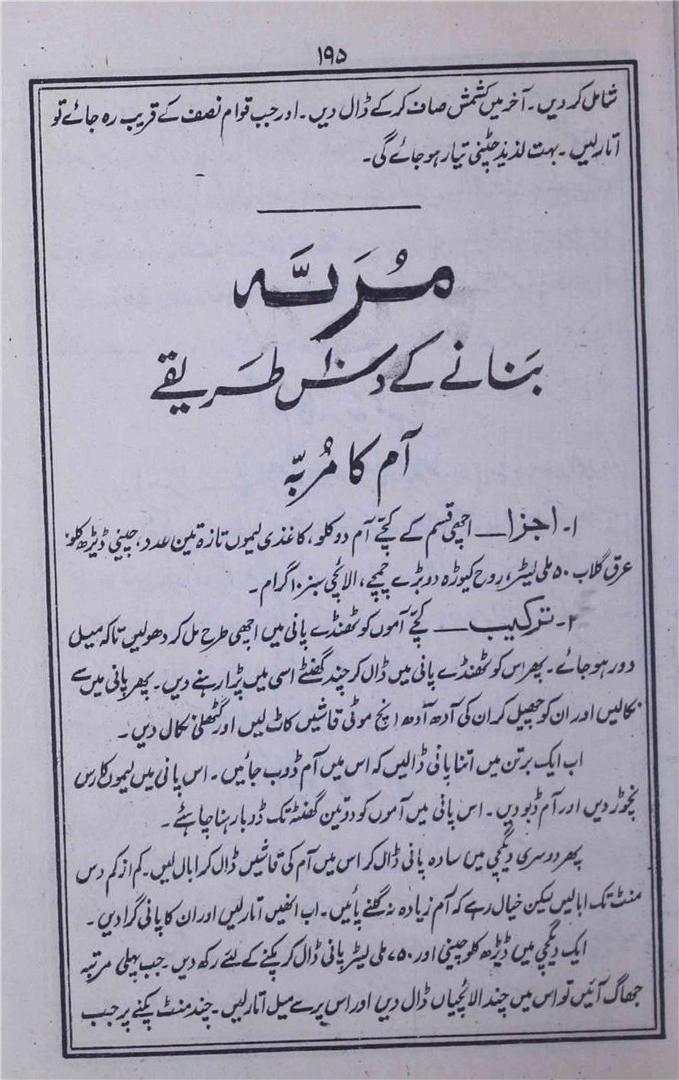 ۱۹۵
شامل کر دیں۔ آخر میں کشمش صاف کر کے ڈال دیں۔ اور جب قوام نصف کے قریب رہ جائے تو
اتار لیں۔ بہت لذیذ چٹنی تیار ہو جائے گی۔
مُربّہ
بنانے کے دس ۱۰ طریقے
آم کا مُربّہ
۱۔ اجزا — اچھی قسم کے کچّے آم دو کلو، کاغذی لیموں تازہ تین عدد، چینی ڈیڑھ کلو،
عرق گلاب ۵۰ ملی لیٹر، روح کیوڑہ دو بڑے چمچے، الائچی سبز ۱۰ گرام۔
۲۔ ترکیب — کچّے آموں کو ٹھنڈے پانی میں اچھی طرح مل کر دھولیں تاکہ میل
دور ہو جائے۔ پھر اس کو ٹھنڈے پانی میں ڈال کر چند گھنٹے اسی میں پڑا رہنے دیں۔ پھر پانی میں سے
نکالیں اور ان کو چھیل کر ان کی آدھ آدھ انچ موٹی قاشیں کاٹ لیں اور گٹھلی نکال دیں۔
اب ایک برتن میں اتنا پانی ڈالیں کہ اس میں آم ڈوب جائیں۔ اس پانی میں لیموں کا رس
نچوڑ دیں اور آم ڈبو دیں۔ اس پانی میں آموں کو دو تین گھنٹہ تک ڈوبا رہنا چاہئے۔
پھر دوسری دیگچی میں سادہ پانی ڈال کر اس میں آم کی قاشیں ڈال کر ابال لیں۔ کم از کم دس
منٹ تک ابالیں لیکن خیال رہے کہ آم زیادہ نہ گلنے پائیں۔ اب انھیں اتار لیں اور ان کا پانی گرا دیں۔
ایک دیگچی میں ڈیڑھ کلو چینی اور ۷۵۰ ملی لیٹر پانی ڈال کر پکنے کے لئے رکھ دیں۔ جب پہلی مرتبہ
جھاگ آئیں تو اس میں چند الائچیاں ڈال دیں اور اس پر سے میل اتار لیں۔ چند منٹ پکنے پر جب